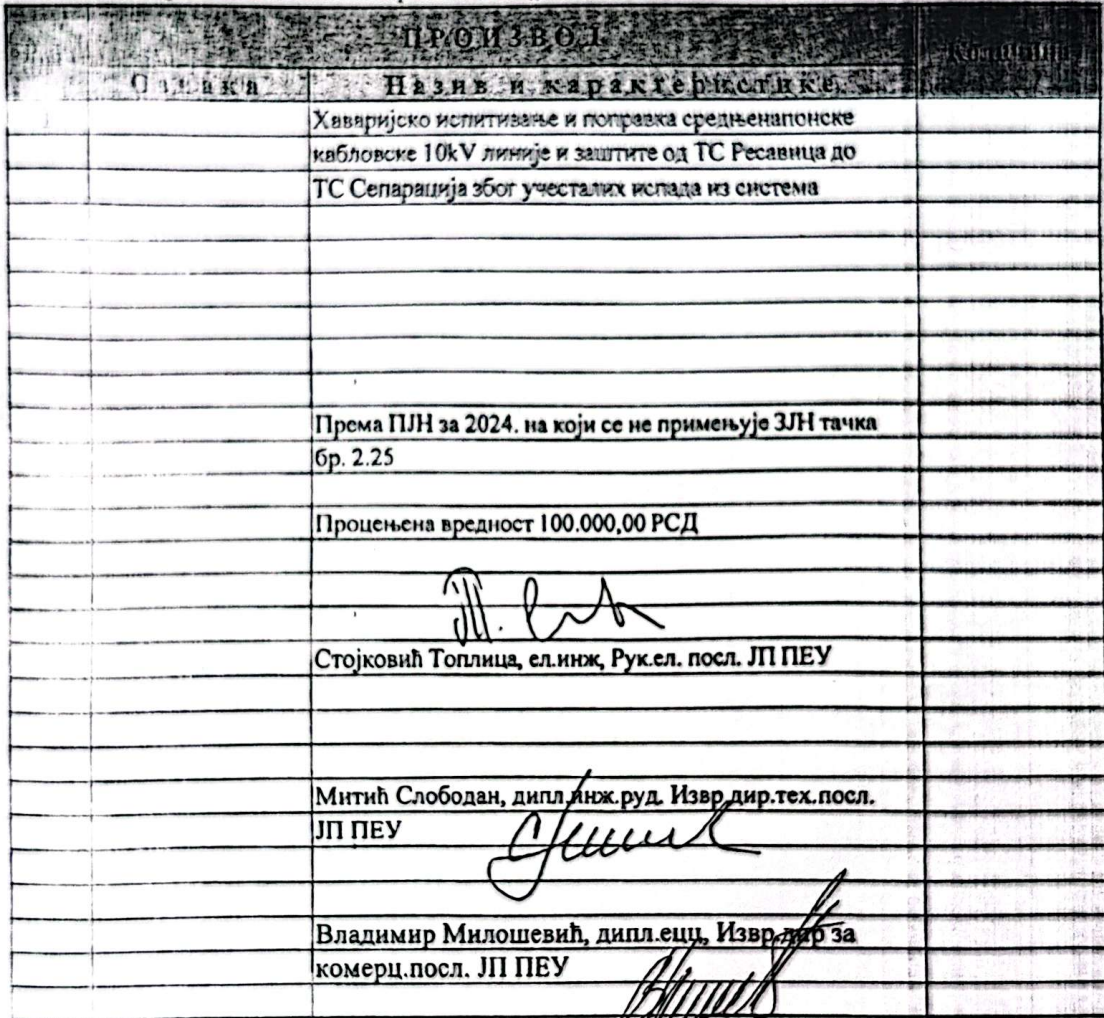 ПРОИЗВОД
Ознака Назив и карактеристике Количина
Хаваријско испитивање и поправка средњенапонске
кабловске 10kV линије и заштите од ТС Ресавица до
ТС Сепарација због учесталих испада из система
Према ПЈН за 2024. на који се не примењује ЗЈН тачка
бр. 2.25
Процењена вредност 100.000,00 РСД
Стојковић Топлица, ел.инж, Рук.ел. посл. ЈП ПЕУ
Митић Слободан, дипл.инж.руд. Извр.дир.тех.посл.
ЈП ПЕУ
Владимир Милошевић, дипл.ецц, Извр.дир за
комерц.посл. ЈП ПЕУ